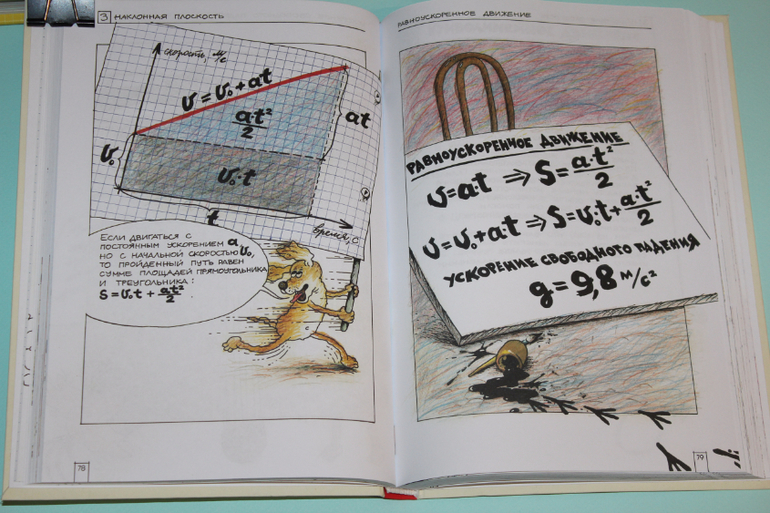 3 НАКЛОННАЯ ПЛОСКОСТЬ
скорость, м/с
v = v₀ + at
at²/2
at
v₀
v₀·t
t
время, с
ЕСЛИ ДВИГАТЬСЯ С
ПОСТОЯННЫМ УСКОРЕНИЕМ a,
НО С НАЧАЛЬНОЙ СКОРОСТЬЮ v₀,
ТО ПРОЙДЕННЫЙ ПУТЬ РАВЕН
СУММЕ ПЛОЩАДЕЙ ПРЯМОУГОЛЬНИКА
И ТРЕУГОЛЬНИКА:
S = v₀t + at²/2.
78
РАВНОУСКОРЕННОЕ ДВИЖЕНИЕ
РАВНОУСКОРЕННОЕ ДВИЖЕНИЕ
v=at ⇒ S=a·t²/2
v=v₀+at ⇒ S=v₀t+a·t²/2
УСКОРЕНИЕ СВОБОДНОГО ПАДЕНИЯ
g=9,8 м/с²
79